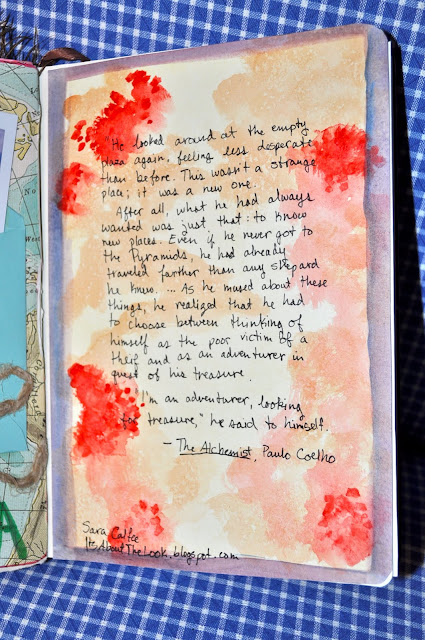 "He looked around at the empty
plaza again, feeling less desperate
than before. This wasn't a strange
place; it was a new one.
After all, what he had always
wanted was just that: to know
new places. Even if he never got to
the Pyramids, he had already
traveled farther than any shepard
he knew. ... As he mused about these
things, he realized that he had
to choose between thinking of
himself as the poor victim of a
thief and as an adventurer in
quest of his treasure.
"I'm an adventurer, looking
for treasure," he said to himself.
- The Alchemist, Paulo Coelho
Sara Calfee
ItsAboutTheLook.blogspot.com
A